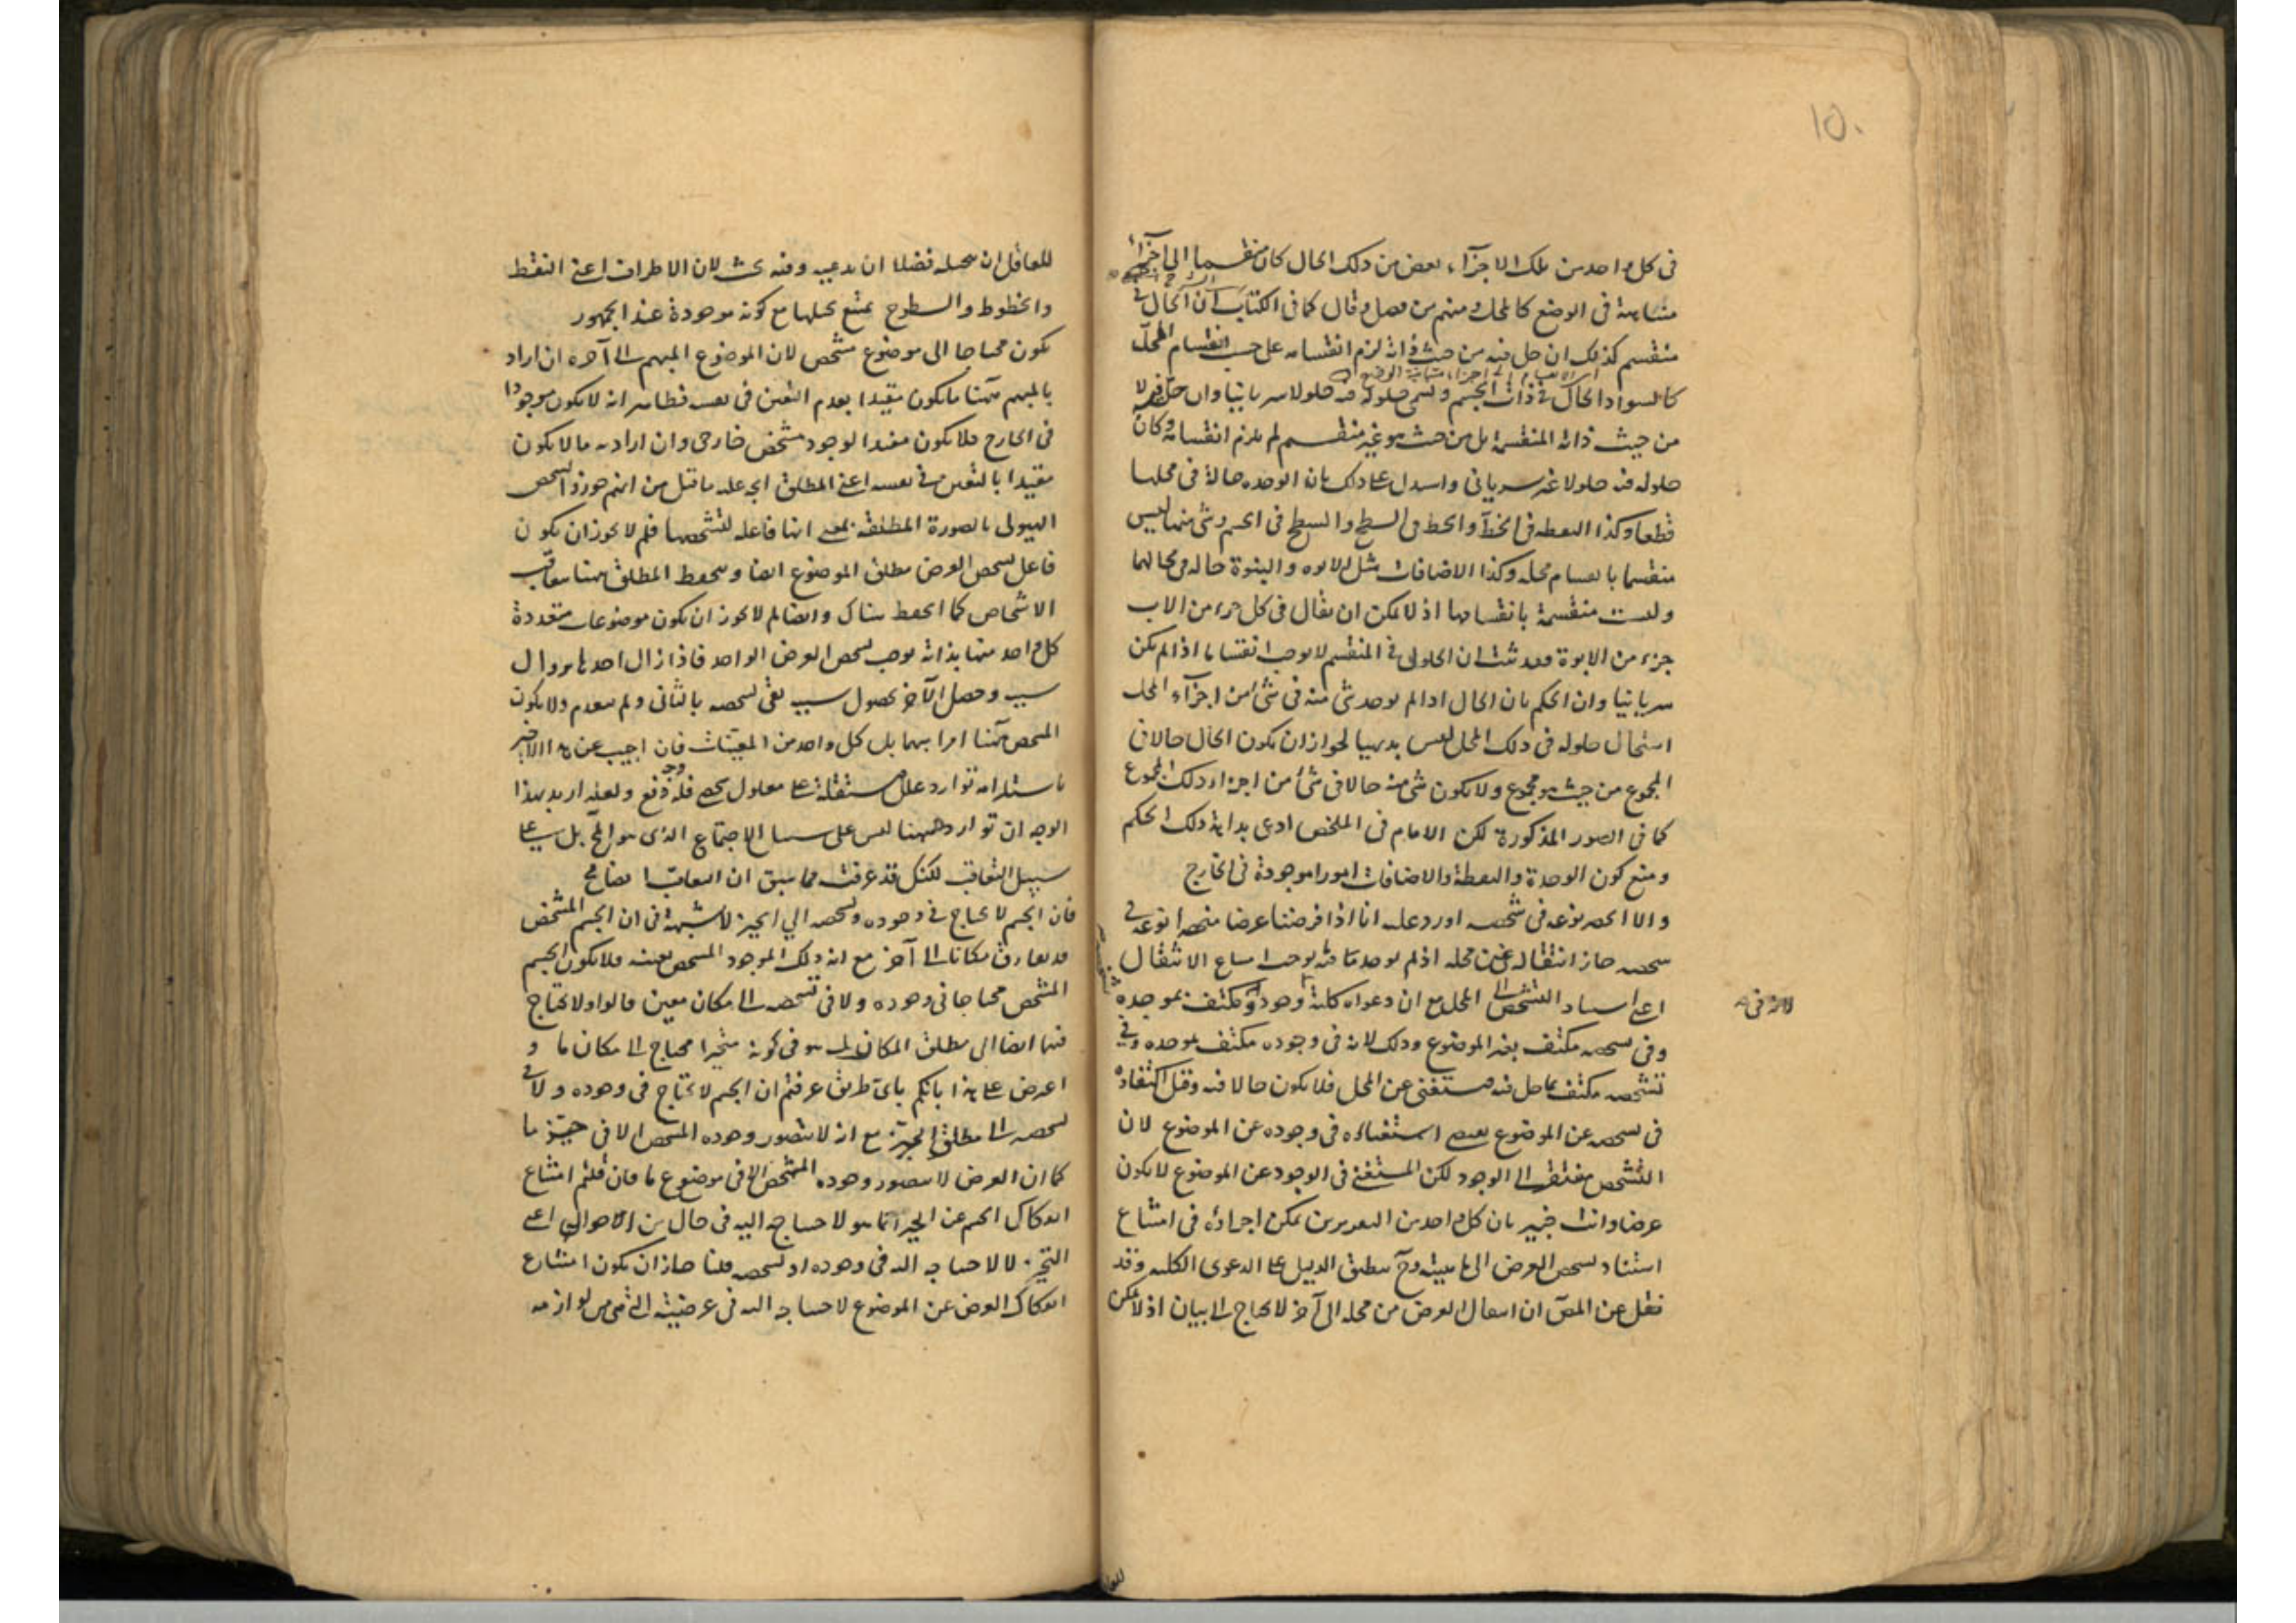 ١٥٠
فى كل واحد من تلك الاجزاء بعض من ذلك الحال كان منقسما الى اجزاء
متشابهة فى الوضع كالمحل ومنهم من فصل وقال كما فى الكتاب ان الحال فى
منقسم كذلك ان حل فيه من حيث ذاته لزم انقسامه على حسب انقسام المحل
كالسواد الحال فى ذات الجسم ويسمى حلوله فيه حلولا سريانيا وان حل فيه لا
من حيث ذاته المنقسمة بل من حيث هو غير منقسم لم يلزم انقسامه وكان
حلوله فيه حلولا غير سريانى واستدل على ذلك بان الوحدة حالة فى محلها
قطعا وكذا النقطة فى الخط والخط فى السطح والسطح فى الجسم وشئ منها ليس
منقسما بانقسام محله وكذا الاضافات مثل الابوة والبنوة حالة فى محالها
وليست منقسمة بانقسامها اذ لا يمكن ان يقال فى كل جزء من الاب
جزء من الابوة فقد ثبت ان الحلول فى المنقسم لا يوجب انقساما اذا لم يكن
سريانيا وان الحكم بان الحال اذا لم يوجد شئ منه فى شئ من اجزاء المحل
استحال حلوله فى ذلك المحل ليس بديهيا لجواز ان يكون الحال حالا فى
المجموع من حيث هو مجموع ولا يكون شئ منه حالا فى شئ من اجزاء ذلك المجموع
كما فى الصور المذكورة لكن الامام فى الملخص ادعى بداهة ذلك الحكم
ومنع كون الوحدة والنقطة والاضافات امورا موجودة فى الخارج
والا انحصر نوعه فى شخصه اورد عليه انا اذا فرضنا عرضا منحصرا نوعه فى
شخصه جاز انتقاله عن محله اذ لم يوجد فيه ما يوجب امتناع الانتقال
اعنى استناد التشخص الى المحل مع ان دعواه كلية وجوده مكتف بموجده
لانه فى
وفى تشخصه مكتف بغير الموضوع وذلك لانه فى وجوده مكتف بموجده وفى
تشخصه مكتف بما حل فيه مستغنى عن المحل فلا يكون حالا فيه وقيل اكتفاؤه
فى تشخصه عن الموضوع يقتضى استغناءه فى وجوده عن الموضوع لان
التشخص مفتقر الى الوجود لكن المستغنى فى الوجود عن الموضوع لا يكون
عرضا وانت خبير بان كل واحد من التقريرين يمكن اجراؤه فى امتناع
استناد تشخص العرض الى ماهيته وح ينطبق الدليل على الدعوى الكلية وقد
نقل عن المص ان انتقال العرض من محله الى آخر لا يحتاج الى بيان اذ لا يمكن
للعاقل ان يتخيله فضلا ان يدعيه وفيه بحث لان الاطراف اعنى النقط
والخطوط والسطوح يمتنع تخيلها مع كونه موجودة عند الجمهور
يكون محتاجا الى موضوع مشخص لان الموضوع المبهم الى آخره ان اراد
بالمبهم ههنا ما يكون مقيدا بعدم التعين فى نفسه فظاهر انه لا يكون موجودا
فى الخارج فلا يكون مفيدا لوجود مشخص خارجى وان اراد به ما لا يكون
مقيدا بالتعين فى نفسه اعنى المطلق اتجه عليه ما قيل من انهم جوزوا تشخص
الهيولى بالصورة المطلقة بمعنى انها فاعلة لتشخصها فلم لا يجوز ان يكون
فاعل تشخص العرض مطلق الموضوع ايضا وينحفظ المطلق ههنا بتعاقب
الاشخاص كما انحفظ هناك وايضا لم لا يجوز ان يكون موضوعات متعددة
كل واحد منها بذاته يوجب تشخص العرض الواحد فاذا زال احدها بزوال
سبب وحصل الآخر بحصول سبب بقى تشخصه بالثانى ولم ينعدم ولا يكون
المشخص ههنا امرا مبهما بل كل واحد من المعينات فان اجيب عن هذا الاخير
باستلزامه توارد علل مستقلة على معلول شخصى فله دفع ولعله اريد بهذا
الوجه ان تواردها ههنا ليس على سبيل الاجتماع الذى هو المح بل على
سبيل التعاقب لكنك قد عرفت مما سبق ان التعاقب ايضا مح
فان الجسم لا يحتاج فى وجوده وتشخصه الى الحيز لا شبهة فى ان الجسم المشخص
قد يفارق مكانا الى آخر مع انه ذلك الموجود المشخص بعينه فلا يكون الجسم
المشخص محتاجا فى وجوده ولا فى تشخصه الى مكان معين قالوا ولا يحتاج
فيها ايضا الى مطلق المكان بل هو فى كونه متحيزا محتاج الى مكان ما و
اعترض على هذا بانكم باى طريق عرفتم ان الجسم لا يحتاج فى وجوده ولا فى
تشخصه الى مطلق الحيز مع انه لا يتصور وجوده المشخص الا فى حيز ما
كما ان العرض لا يتصور وجوده المشخص الا فى موضوع ما فان قلتم امتناع
انفكاك الجسم عن الحيز انما هو لاحتياجه اليه فى حال من الاحوال اعنى
التحيز لا لاحتياجه اليه فى وجوده او تشخصه قلنا جاز ان يكون امتناع
انفكاك العرض عن الموضوع لاحتياجه اليه فى عرضيته التى هى من لوازمه